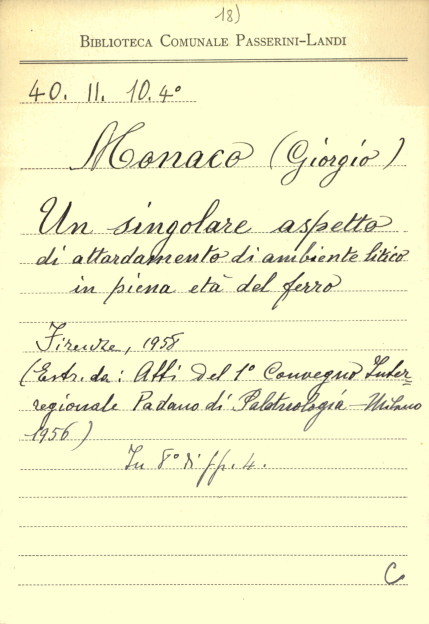 18)
BIBLIOTECA COMUNALE PASSERINI-LANDI
40. II. 10. 4°
Monaco (Giorgio)
Un singolare aspetto
di attardamento di ambiente litico
in piena età del ferro
Firenze, 1958
(Estr. da: Atti del 1° Convegno Inter=
regionale Padano di Paletnologia - Milano
1956)
In 8° di pp. 4.
C